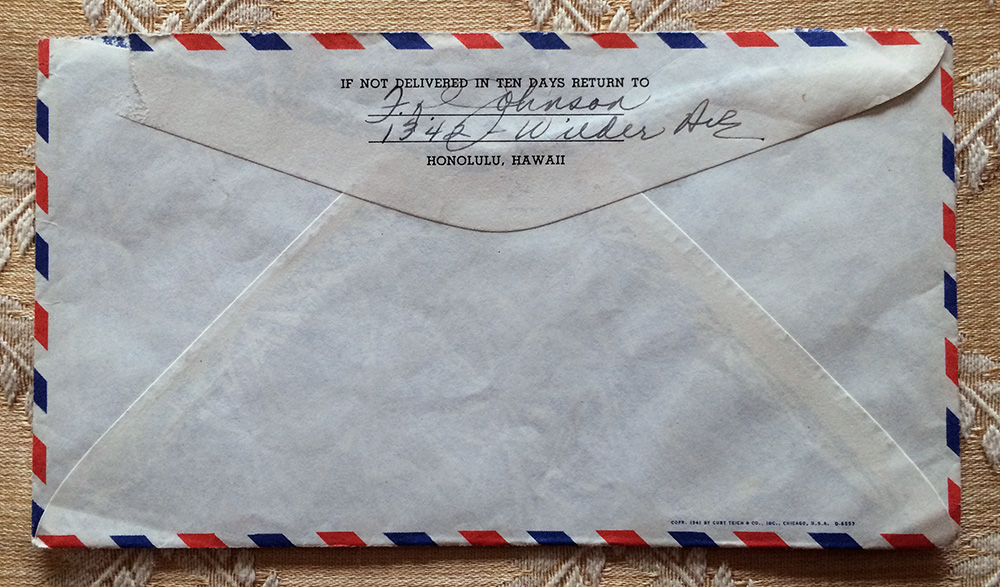 IF NOT DELIVERED IN TEN DAYS RETURN TO
F. J. Johnson
1342 - Wilder Ave
HONOLULU, HAWAII
COPR. 1941 BY CURT TEICH & CO., INC., CHICAGO, U.S.A. D-6553